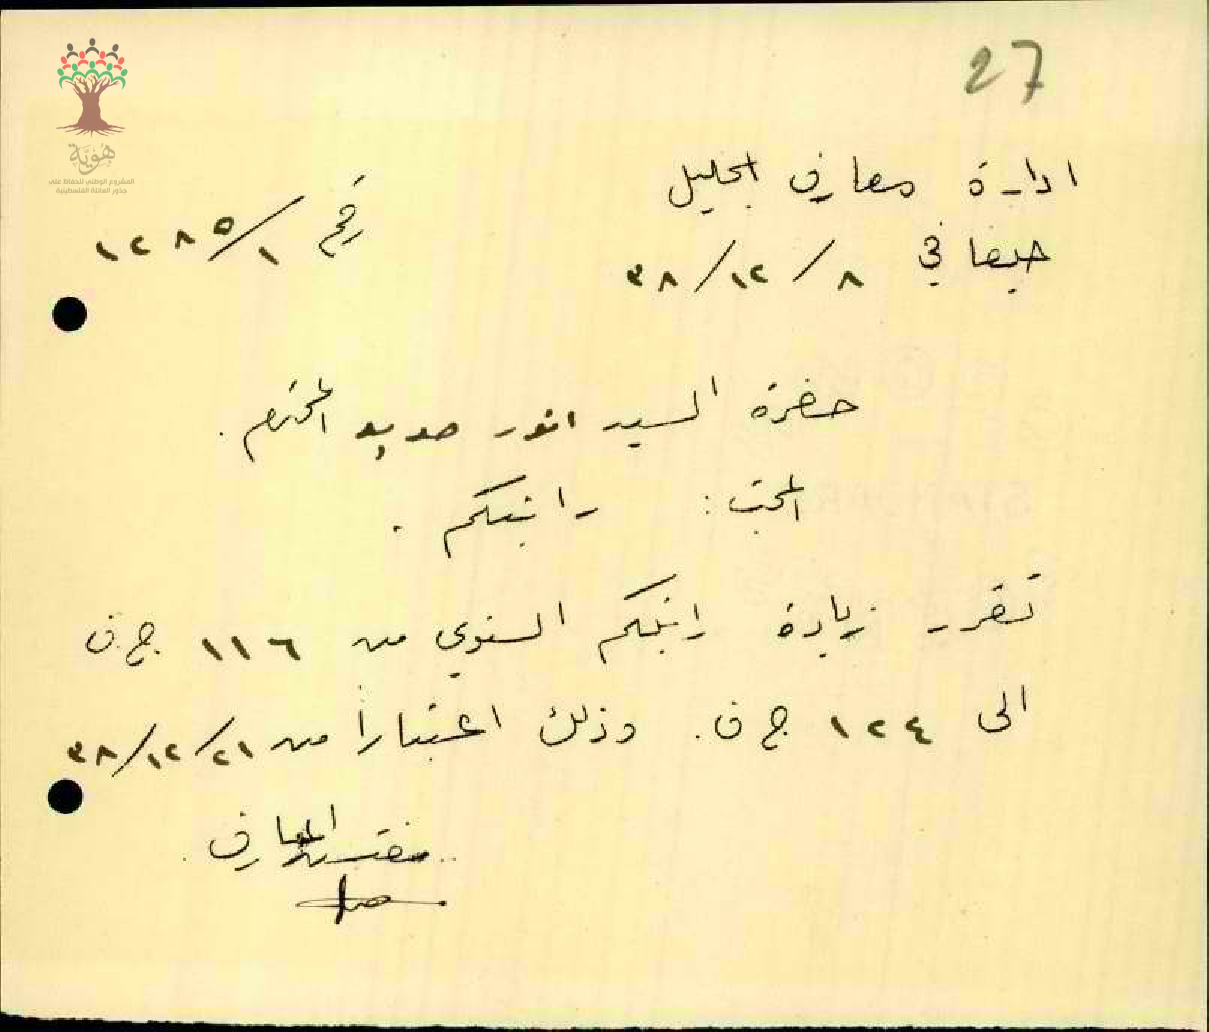 27
هوية
المشروع الوطني للحفاظ على
جذور العائلة الفلسطينية
ادارة معارف الجليل
حيفا في ٨ / ١٢ / ٣٨ رقم ١ / ١٢٨٥
حضرة السيد انور حديد المحترم .
المحبث : راتبكم .
تقرر زيادة راتبكم السنوي من ١١٦ ج.ف
الى ١٢٤ ج ف. وذلك اعتباراً من ٢١/١٢/٣٨
مفتش المعارف